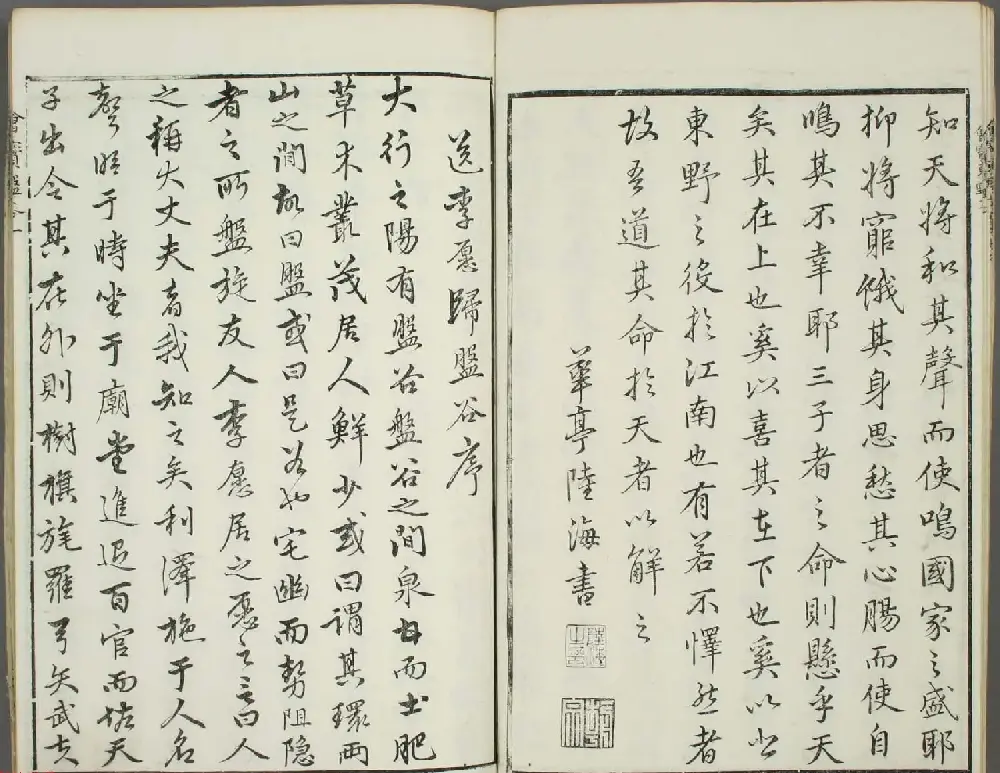 知天將和其聲而使鳴國家之盛耶
抑將窮餓其身思愁其心腸而使自
鳴其不幸耶三子者之命則懸乎天
矣其在上也奚以喜其在下也奚以悲
東野之役於江南也有若不懌然者
故吾道其命於天者以解之
華亭陸海書
送李愿歸盤谷序
大行之陽有盤谷盤谷之間泉甘而土肥
草木叢茂居人鮮少或曰謂其環兩
山之間故曰盤或曰是谷也宅幽而勢阻隐
者之所盤旋友人李愿居之愿之言曰人
之稱大丈夫者我知之矣利澤施于人名
聲昭于時坐于廟堂進退百官而佐天
子出令其在外則樹旗旄羅弓矢武夫